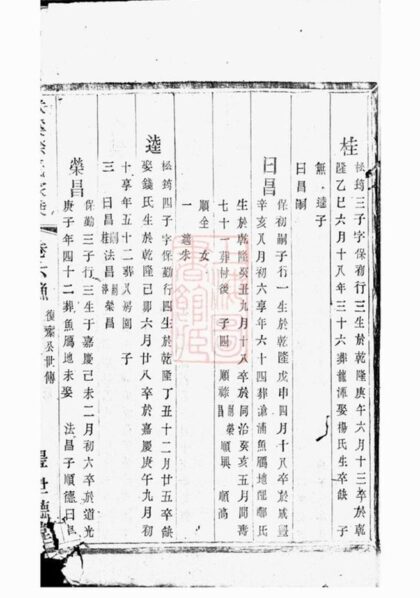 桂 松筠三子字保宥行三生於乾隆庚午六月十三卒於乾
隆乙巳六月十八年三十六葬龍潭娶楊氏生卒缺 子
無 逵子
曰昌
曰昌 保初嗣子行一生於乾隆戊申四月十八卒於咸豐
辛亥八月初六享年六十四葬滄浦魚屬地配鄒氏
生於乾隆癸丑九月十八卒於同治癸亥五月閏壽
七十一葬付後 子四 順祿 嗣榮昌 順興 順高
順全 女
一 適朱
逵 松筠四子字保勤行四生於乾隆丁丑十二月廿五卒缺
娶錢氏生於乾隆己卯六月廿八卒於嘉慶庚午九月初
十享年五十二葬 園 子
三 曰昌 嗣桂 法昌 榮昌
榮昌 保勤三子字行三生于嘉慶己未二月初六卒於道光
庚子年四十二葬魚屬地未娶 法昌子順德曰昌
卷六 復 公世傳